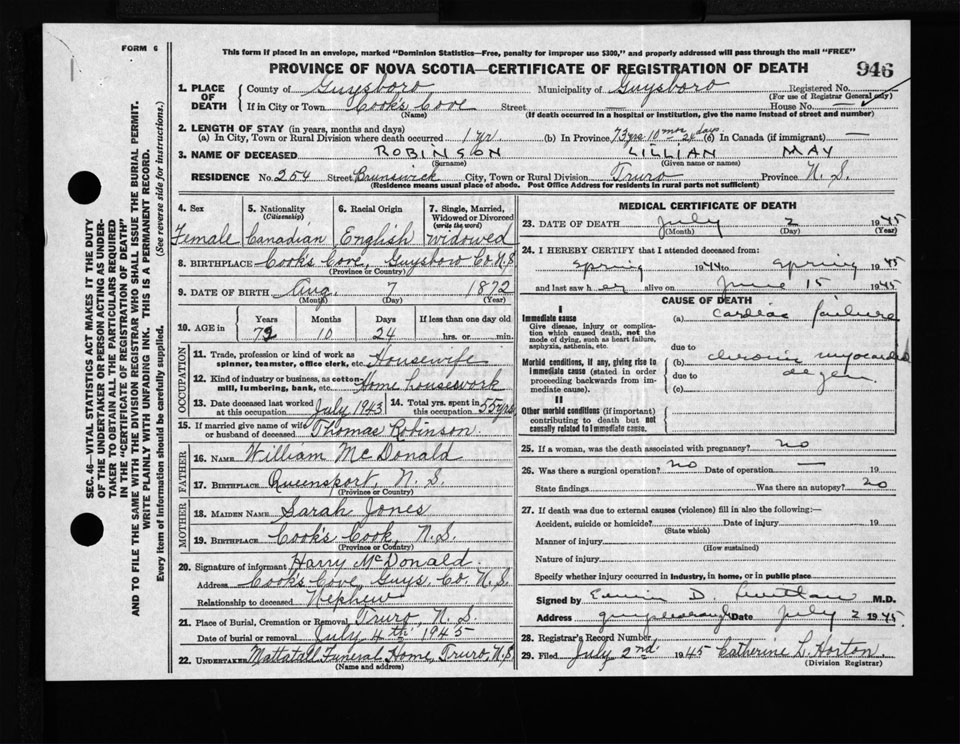 FORM 6
This form if placed in an envelope, marked "Dominion Statistics—Free, penalty for improper use $300," and properly addressed will pass through the mail "FREE"
PROVINCE OF NOVA SCOTIA—CERTIFICATE OF REGISTRATION OF DEATH
946
SEC. 46—VITAL STATISTICS ACT MAKES IT THE DUTY
OF THE UNDERTAKER OR PERSON ACTING AS UNDER-
TAKER TO OBTAIN ALL THE PARTICULARS REQUIRED
IN THE "CERTIFICATE OF REGISTRATION OF DEATH"
AND TO FILE THE SAME WITH THE DIVISION REGISTRAR WHO SHALL ISSUE THE BURIAL PERMIT.
WRITE PLAINLY WITH UNFADING INK. THIS IS A PERMANENT RECORD.
Every item of information should be carefully supplied. (See reverse side for instructions.)
1. PLACE OF DEATH
County of Guysboro Municipality of Guysboro Registered No.
(For use of Registrar General only)
If in City or Town Cook's Cove Street — House No. —
(Name) (If death occurred in a hospital or institution, give the name instead of street and number)
2. LENGTH OF STAY (in years, months and days)
(a) In City, Town or Rural Division where death occurred 1 yr (b) In Province 73 yrs 10 mos 24 days (c) In Canada (if immigrant) —
3. NAME OF DECEASED ROBINSON LILLIAN MAY
(Surname) (Given name or names)
RESIDENCE No. 254 Street Brunswick City, Town or Rural Division Truro Province N. S.
(Residence means usual place of abode. Post Office Address for residents in rural parts not sufficient)
4. Sex Female
5. Nationality (Citizenship) Canadian
6. Racial Origin English
7. Single, Married, Widowed or Divorced (write the word) widowed
8. BIRTHPLACE Cook's Cove, Guysboro Co. N.S
(Province or Country)
9. DATE OF BIRTH Aug. 7 1872
(Month) (Day) (Year)
10. AGE in Years Months Days If less than one day old
72 10 24 hrs. or min.
OCCUPATION
11. Trade, profession or kind of work as spinner, teamster, office clerk, etc. Housewife
12. Kind of industry or business, as cotton-mill, lumbering, bank, etc. Home housework
13. Date deceased last worked at this occupation July 1943
14. Total yrs. spent in this occupation 55 yrs
15. If married give name of wife or husband of deceased Thomas Robinson.
FATHER
16. NAME William McDonald
17. BIRTHPLACE Queensport, N. S.
(Province or Country)
MOTHER
18. MAIDEN NAME Sarah Jones
19. BIRTHPLACE Cook's Cook, N.S.
(Province or Country)
20. Signature of informant Harry McDonald.
Address Cook's Cove, Guys. Co. N. S.
Relationship to deceased Nephew
21. Place of Burial, Cremation or Removal Truro, N. S.
Date of burial or removal July 4th 1945
22. UNDERTAKER Mattatall Funeral Home, Truro, N.S
(Name and address)
MEDICAL CERTIFICATE OF DEATH
23. DATE OF DEATH July 2 1945
(Month) (Day) (Year)
24. I HEREBY CERTIFY that I attended deceased from:
Spring 1944 to Spring 1945
and last saw her alive on June 15 1945
CAUSE OF DEATH
I
Immediate cause
Give disease, injury or complication which caused death, not the mode of dying, such as heart failure, asphyxia, asthenia, etc.
(a) cardiac failure
due to
Morbid conditions, if any, giving rise to immediate cause (stated in order proceeding backwards from immediate cause).
(b) chronic myocardial
due to degen.
(c)
II
Other morbid conditions (if important) contributing to death but not causally related to immediate cause.
25. If a woman, was the death associated with pregnancy? no
26. Was there a surgical operation? no Date of operation — 19
State findings Was there an autopsy? no
27. If death was due to external causes (violence) fill in also the following:
Accident, suicide or homicide? Date of injury 19
(State which)
Manner of injury
(How sustained)
Nature of injury
Specify whether injury occurred in industry, in home, or in public place
Signed by D. M.D.
Address Date July 2 1945
28. Registrar's Record Number
29. Filed July 2nd 1945 Catherine L. Horton.
(Division Registrar)